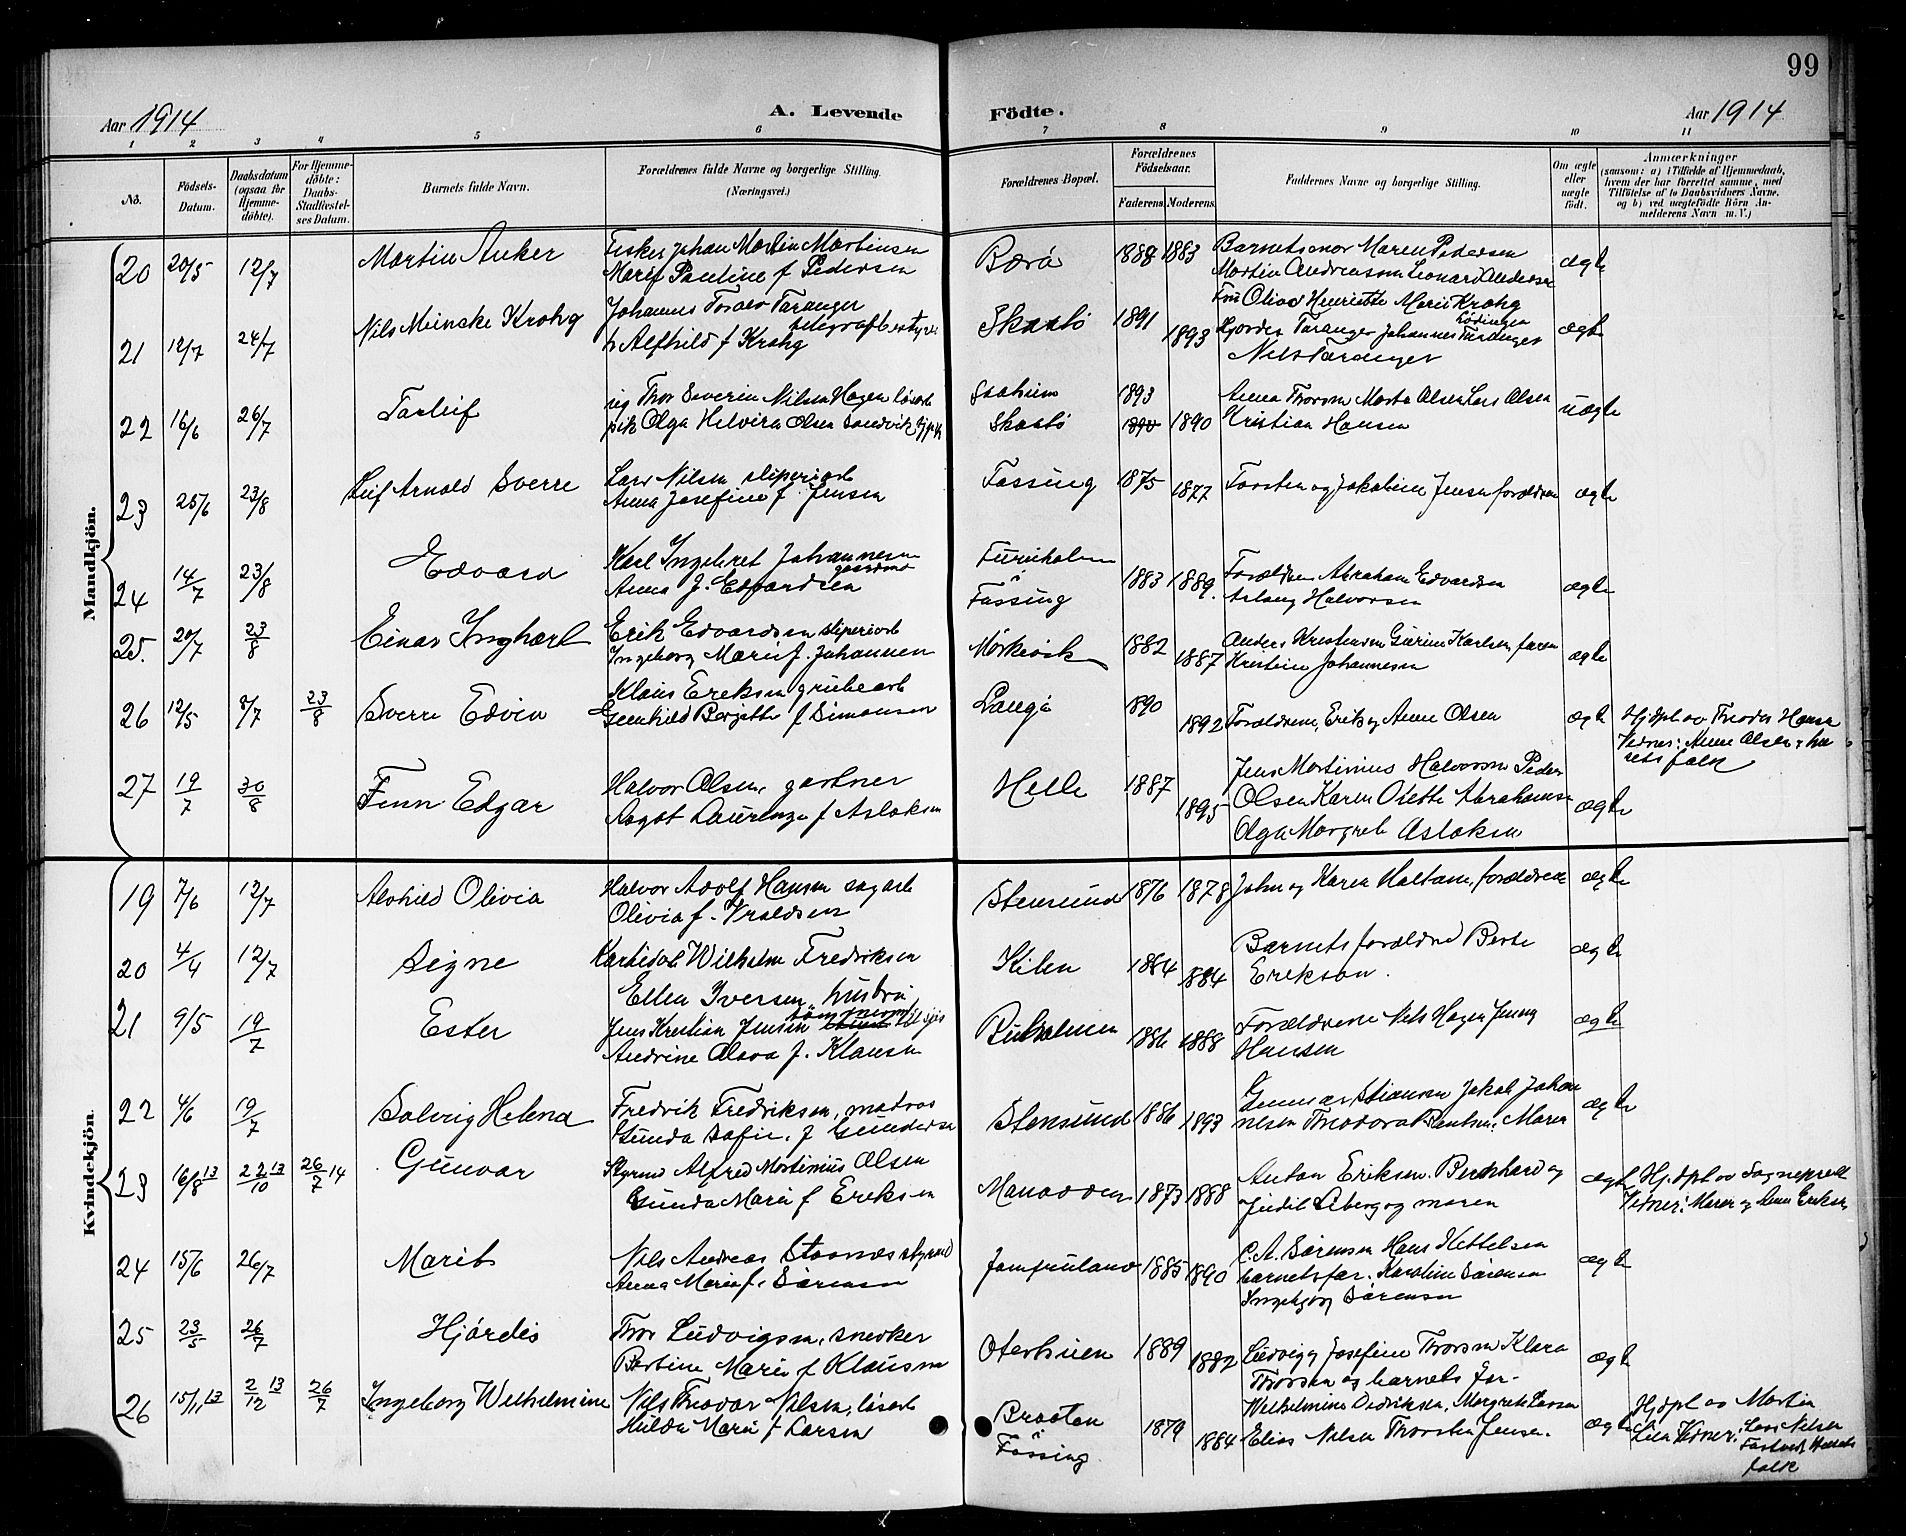 99
Aar 1914
A. Levende
Födte.
Aar 1914
1 2 3 4 5 6 7 8 9 10 11
No.
Födsels-Datum.
Daabsdatum (ogsaa for Hjemme-döbte).
For Hjemme-döbte: Daabs-Stadfæstel-ses Datum.
Barnets fulde Navn.
Forældrenes fulde Navne og borgerlige Stilling. (Næringsvei.)
Forældrenes Bopæl.
Forældrenes Födselsaar.
Faderens. Moderens.
Faddernes Navne og borgerlige Stilling.
Om ægte eller uægte födt.
Anmærkninger
(saasom: a) i Tilfælde af Hjemmedaab, hvem der har forrettet samme, med Tilföielse af to Daabsvidners Navne, og b) ved uægtefödte Börn An-melderens Navn m. V.)
Mandkjön.
20 20/5 12/7 Martin Anker Fisker Johan Martin Martinsen Bærö 1888 1883 Barnets mor Maren Pedersen ægte
Marie Pauline f Pedersen Martin Andreassen Leonard
21 12/7 24/7 Nils Meincke Krohg Johannes Taranger telegrafbestyrer Skaatö 1891 1893 Fru Henriette Marie Krohg Lödingen ægte
h Alfhild f Krohg Hjordis Taranger Johannes Taranger
Nils Taranger
22 16/6 26/7 Torleif Thor Severin Nilsen Hagen lösarb 1893 Anna Thorsen Marta Olsen Lars Olsen uægte
pik Olga Helvira Olsen Sandvik Skaatö 1890 1890 Kristian Hansen
23 25/6 23/8 Leif Arnold Sverre Lars Nilsen sliperiarb Fossing 1875 1877 Torsten og Jakobine Jensen forældrene ægte
Anna Josefine f. Jensen
24 14/7 23/8 Edvard Karl Ingebret Johannesen gaardmd Furuholmen 1883 1889. Forældrene Abraham Edvardsen ægte
Anna f. Edvardsen Fössing Aslaug Halvorsen
25. 20/7 23/8 Einar Ingharl Erik Edvardsen sliperiarb Mörkevik 1882 1887 Anders Kristensen Karlsen faren ægte
Ingeborg Marie f. Johannsen Kristine Johannesen
26 12/5 8/7 23/8 Sverre Edvin Klaus Eriksen grubearb Langö 1890 1892 Forældrene, Erik og Anne Olsen ægte Hjdpt av Theodor Hansen
Gunhild Bergitte f Simonsen Vidner: Anne Olsen
folk
27 19/7 30/8 Finn Edgar Halvor Olsen, gartner Helle 1887 1895 Jens Martinius Halvorsen Peder ægte
Dagot Laurenze f Aslaksen Olsen Karen Osette Abrahamsen
Olga Margrete Aslaksen
Kvindekjön.
19 7/6 12/7 Alvhild Olivia Halvor Adolf Hansen sagarb Stensund 1876 1878 John og Karen Haltam, forældrene ægte
Olivia f. Vraldsen
20 4/4 12/7 Signe Wilhelm Fredriksen Kilen 1884 1884 Barnets forældre Berte ægte
Ellen Iversen, hustru Erikson.
21 9/5 19/7 Ester Jens Kristian Jensen tömmermd 1886 1888 Forældrene Nils Hagen Jenny ægte
Andrine Olava f. Klausen Hansen
22 4/6 19/7 Solveig Helena Fredrik Fredriksen, matros Stensund 1886 1893 Gunnar Stiansen Jakob Johan ægte
Gunda Sofie f Gundersen nesen Theodora Maren
23 16/8 13 22/10 13 26/7 14 Gunvor Styrmd Alfred Martinius Olsen 1873 1888 Anton Eriksen. Bernhard og ægte Hj.dpt av Sogneprest
Gunda Marie f Eriksen Judit Aberg og moren Vidner: Maren og Anne Eriksen
24 15/6 26/7 Marit Nils Andreas styrmd Jomfruland 1885 1890 C.A. Sørensen Hans Kittelsen ægte
Anna Marie f. Sørensen barnets far. Karoline Sørensen
Ingeborg Sørensen
25 23/5 26/7 Hjördis Thor Ludvigsen, snedker Oterhuen 1889 1882 Ludvig og Josefine Thorsen Klara ægte
Bertine Marie f Klausen Thorsen og barnets far.
26 15/11 13 2/12 13 26/7 Ingeborg Wilhelmine Nils Theodor Nilsen, lösarb Braaten 1879 1884 Wilhelmine Didriksen, Margrete Larsen ægte Hjdpt av Martin
Hulda Marie f Larsen Fössing Elias Nilsen Thorsten Jensen. Lien Vidner: Lars Nilsen
folk